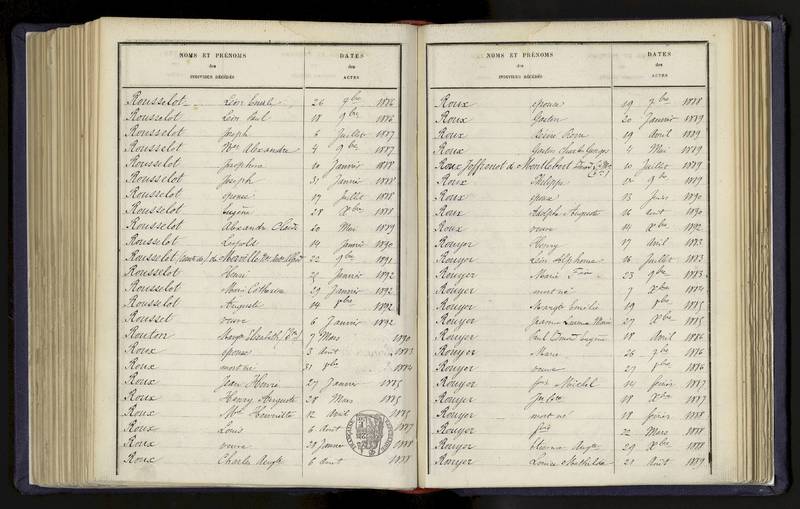 NOMS ET PRÉNOMS DATES
des des
INDIVIDUS DÉCÉDÉS ACTES
Rousselot Léon Emile 26 7bre 1886
Rousselot Léon Paul 18 9bre 1886
Rousselot Joseph 6 Juillet 1887
Rousselot Mce Alexandre 4 9bre 1887
Rousselot Joséphine 10 Janvier 1888
Rousselot Joseph 31 Janvier 1888
Rousselot épouse 17 Juillet 1888
Rousselot Eugène 28 Xbre 1888
Rousselot Alexandre Claude 20 Mai 1889
Rousselot Léopold 14 Janvier 1890
Rousselot de Morville 22 9bre 1891
Rousselot Henri 25 Janvier 1892
Rousselot Marie Catherine 29 Janvier 1892
Rousselot Auguste 14 1892
Rousset veuve 6 Janvier 1892
Routon Margte Elisabeth 7 Mars 1890
Roux épouse 3 Août 1883
Roux mort né 31 1884
Roux Jean Henri 27 Janvier 1885
Roux Henry Auguste 28 Mars 1885
Roux Henriette 12 Avril 1885
Roux Louis 6 Août 1887
Roux veuve 28 Janvier 1888
Roux Charles Augte 6 Août 1888
NOMS ET PRÉNOMS DATES
des des
INDIVIDUS DÉCÉDÉS ACTES
Roux épouse 19 7bre 1888
Roux Gaston 20 Janvier 1889
Roux 19 Avril 1889
Roux Gaston Charles Georges 4 Mai 1889
Roux Joffrenot de Montlebert 10 Juillet 1889
Roux Philippe 12 9bre 1889
Roux épouse 13 1890
Roux Adolphe Auguste 16 Août 1890
Roux veuve 14 Xbre 1892
Rouyer Henry 17 Avril 1883
Rouyer Léon Alphonse 16 Juillet 1883
Rouyer Marie 23 9bre 1883
Rouyer mort né 7 Xbre 1884
Rouyer Margte Emélie 19 1885
Rouyer Jeanne Louise Marie 27 Xbre 1885
Rouyer Paul Eugène 18 Avril 1886
Rouyer Marie 26 7bre 1886
Rouyer veuve 27 1886
Rouyer Michel 14 février 1887
Rouyer 18 Xbre 1887
Rouyer mort né 18 février 1888
Rouyer 22 Mars 1888
Rouyer Augte 29 Xbre 1888
Rouyer Louise Mathilde 21 Août 1889